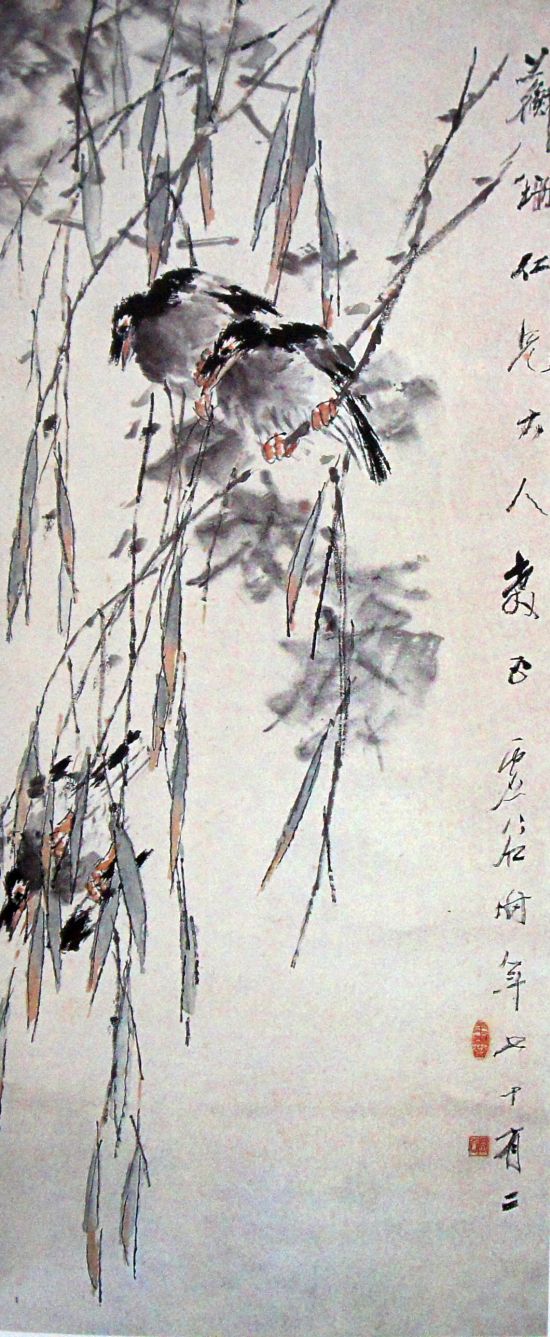 蘅仁兄大人教正虛谷時年七十有二